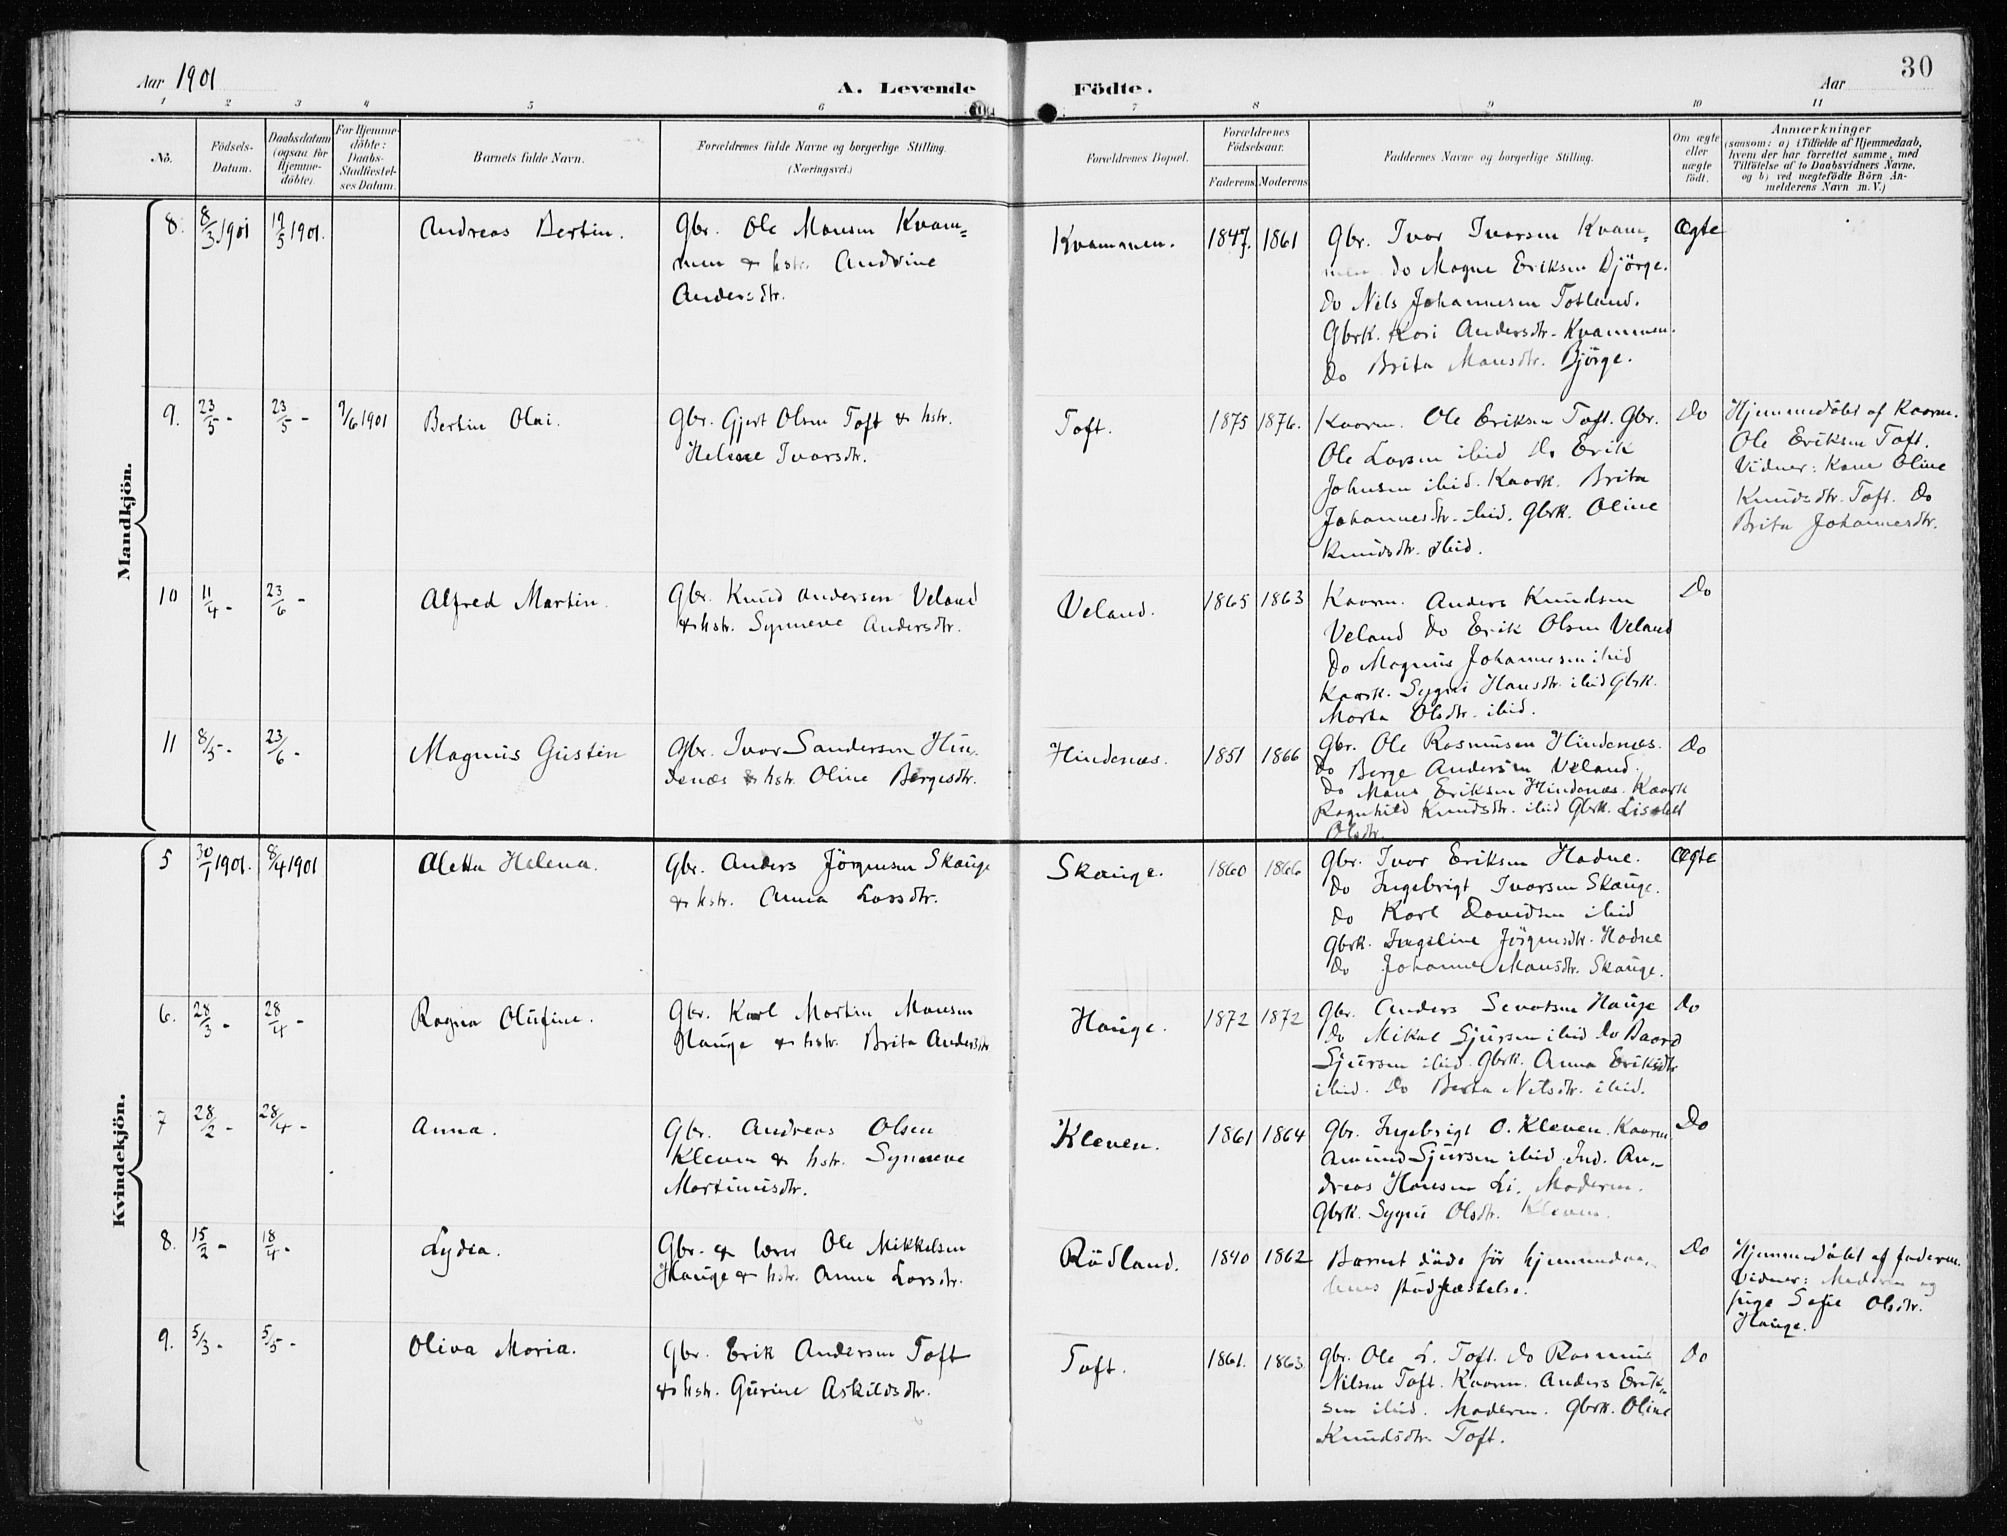 Aar 1901
A. Levende Födte.
Aar
30
1 2 3 4 5 6 7 8 9 10 11
No.
Födsels-
Datum.
Daabsdatum
(ogsaa for
Hjemme-
döbte).
For Hjemme-
döbte:
Daabs-
Stadfæstel-
ses Datum.
Barnets fulde Navn.
Forældrenes fulde Navne og borgerlige Stilling.
(Næringsvei.)
Forældrenes Bopæl.
Forældrenes
Födselsaar.
Faderens. Moderens.
Faddernes Navne og borgerlige Stilling.
Om ægte
eller
uægte
födt.
Anmærkninger
(saasom: a) i Tilfælde af Hjemmedaab,
hvem der har forrettet samme, med
Tilföielse af to Daabsvidners Navne.
og b) ved uægtefödte Börn An-
melderens Navn m. V.)
Mandkjön.
8. 8/3 1901 19/5 1901.
Andreas Bertin.
Gbr. Ole Monsen Kvam=
men & hstr. Andrine
Andersdtr.
Kvammen.
1847. 1861
Gbr. Ivar Ivarsen Kvam=
men do Magne Eriksen Björge.
do Nils Johannesen Totland.
Gbrk. Kari Andersdtr. Kvammen.
do Brita Mansdtr. Björge.
Ægte
9. 23/5 - 23/5 - 9/6 1901
Bertin Olai.
Gbr. Gjert Olsen Toft & hstr.
Helene Ivarsdtr.
Toft.
1875 1876.
Kaarm. Ole Eriksen Toft. Gbr.
Ole Larsen ibid Do Erik
Johnsen ibid. Kaark. Brita
Johannesdtr. ibid. Gbrk. Oline
Knudsdtr. ibid.
Do
Hjemmedöbt af Kaarm.
Ole Eriksen Toft.
Vidner: Kone Oline
Knudsdtr. Toft. Do
Brita Johannesdtr.
10 11/4 - 23/6 -
Alfred Martin.
Gbr. Knud Andersen Veland
& hstr. Synneve Andersdtr.
Veland.
1865 1863
Kaarm. Anders Knudsen
Veland Do Erik Olsen Veland
Do Magnus Johannesen ibid
Kaark. Sygni Hansdtr. ibid Gbrk.
Marta Olsdtr. ibid.
Do
11 8/5 - 23/6 -
Magnus Gustin
Gbr. Ivar Sandersen Hin-
denæs & hstr. Oline Bergesdtr.
Hindenæs.
1851 1866
Gbr. Ole Rasmusen Hindenæs.
Do Berge Andersen Veland.
Do Mans Eriksen Hindenæs. Kaark
Ragnhild Knudsdtr. ibid Gbrk. Lisabet
Olsdtr.
Do
Kvindekjön.
5 30/1 1901. 8/4 1901
Aletta Helena.
Gbr. Anders Jörgensen Skauge
& hstr. Anna Larsdtr.
Skauge.
1860 1866
Gbr. Ivar Eriksen Hodne.
Do Ingebrigt Ivarsen Skauge.
Do Karl Davidsen ibid
Gbrk. Ingeline Jörgensdtr. Hodne
Do Johanne Mansdtr. Skauge.
Ægte
6. 28/3 - 28/4 -
Ragna Olufine.
Gbr. Karl Martin Monsen
Hauge & hstr. Brita Andersdtr
Hauge.
1872 1872
Gbr. Anders Sevatsen Hauge
Do Mikal Sjursen ibid Do Baard
Sjursen ibid. Gbrk. Anna Eriksdtr
ibid. Do Berta Nilsdtr. ibid.
Do
7 28/2 - 28/4 -
Anna.
Gbr. Andreas Olsen
Kleven & hstr. Synneve
Martinusdtr.
Kleven.
1861 1864
Gbr. Ingebrigt O. Kleven. Kaarm
Amund Sjursen ibid. Ind. An=
dreas Hansen Li. Moderen.
Gbrk. Sygni Olsdtr. Kleven.
Do
8. 15/2 - 18/4 -
Lydia.
Gbr. & lærer Ole Mikkelsen
Hauge & hstr. Anna Larsdtr.
Rödland.
1840 1862
Barnet döde för hjemmedaa-
bens stadfæstelse.
Do
Hjemmedöbt af faderen.
Vidner: Moderen og
pige Sofie Olsdtr.
Hauge.
9. 5/3 - 5/5 -
Oliva Maria.
Gbr. Erik Andersen Toft
& hstr. Gurine Askildsdtr.
Toft.
1861. 1863
Gbr. Ole L. Toft. Do Rasmus
Nilsen Toft. Kaarm. Anders Erik=
sen ibid. Moderen. Gbrk. Oline
Knudsdtr. Toft.
Do